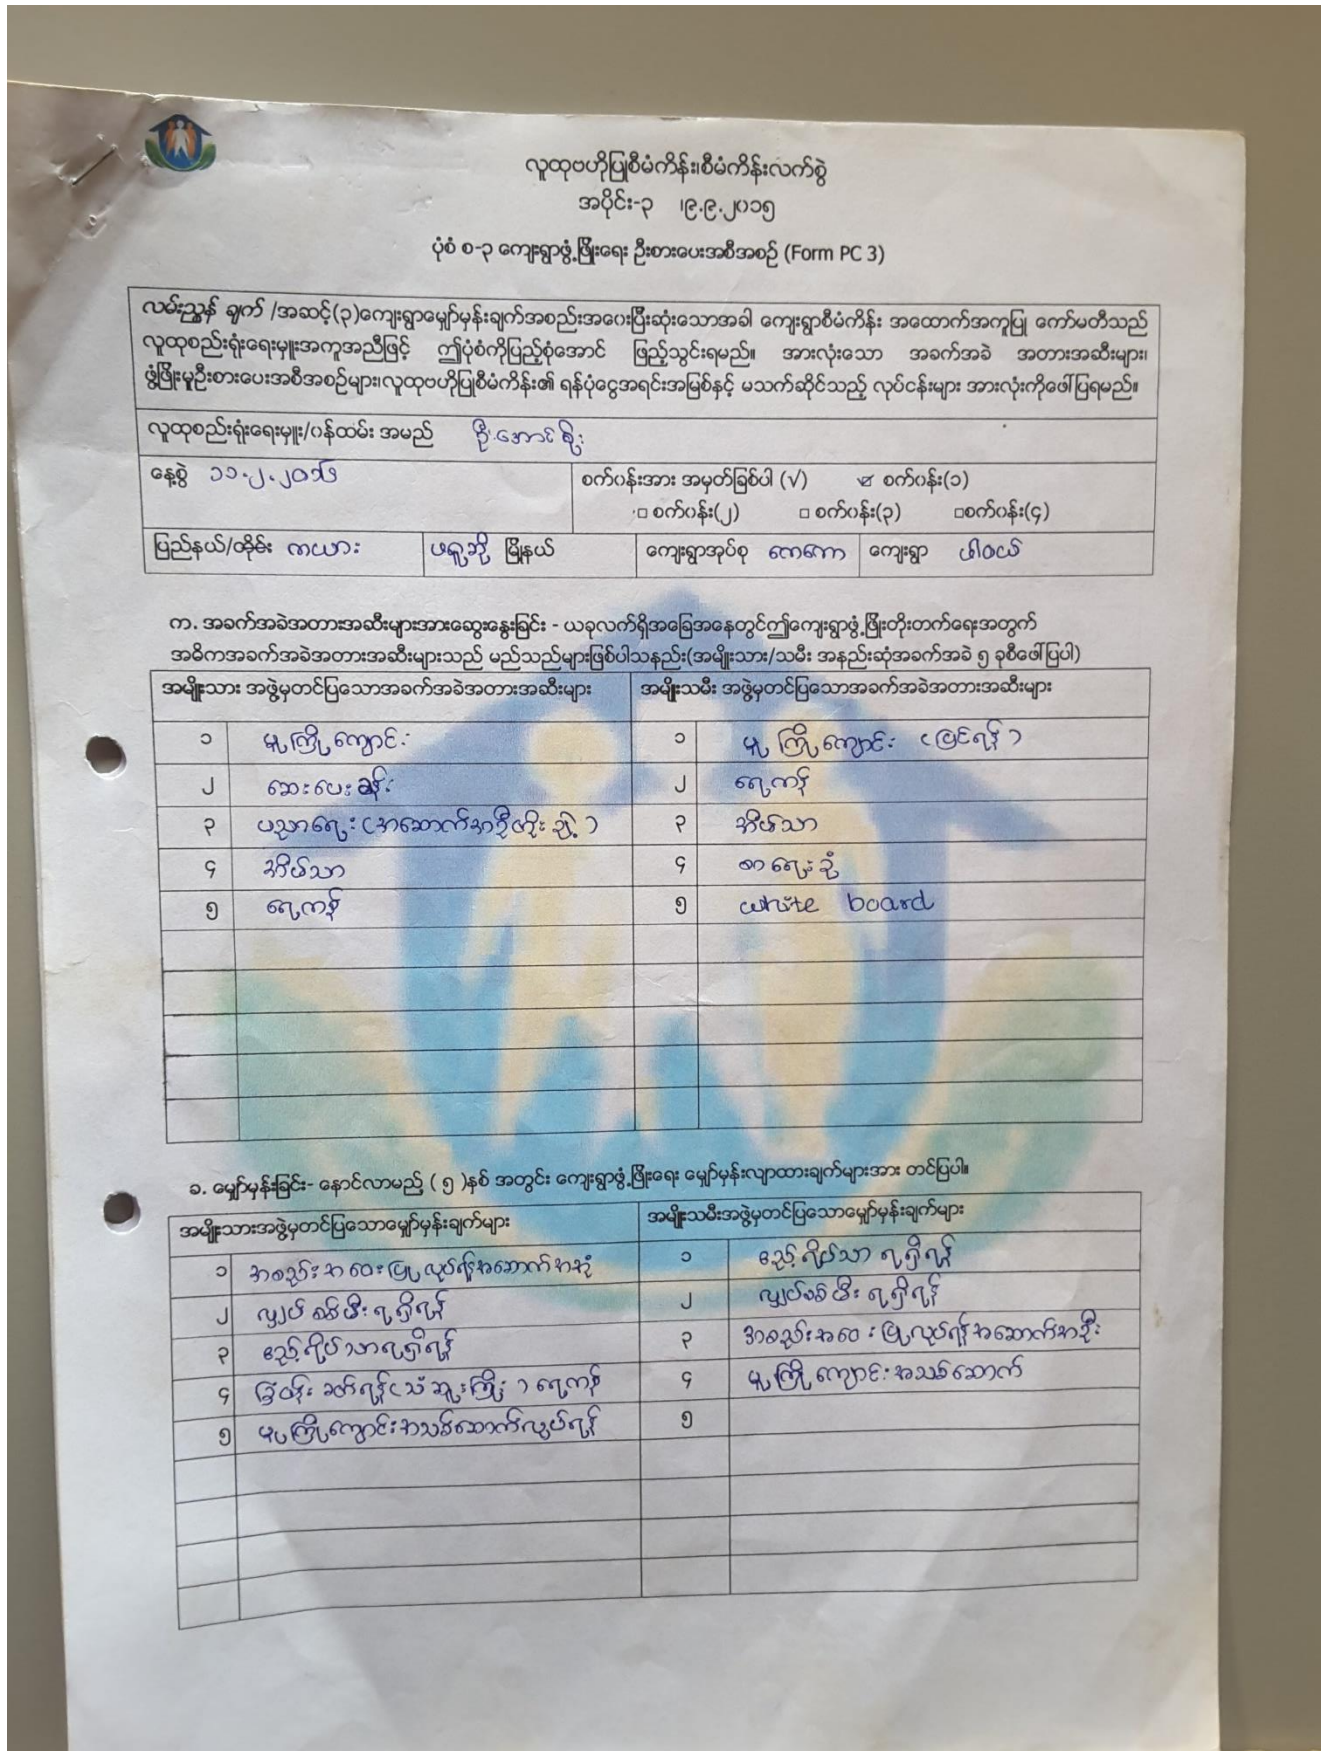 လူထုဗဟိုပြုစီမံကိန်း၊စီမံကိန်းလက်စွဲ
အပိုင်း-၃ ၊၉.၉.၂၀၁၅
ပုံစံ စ-၃ ကျေးရွာဖွံ့ဖြိုးရေး ဦးစားပေးအစီအစဉ် (Form PC 3)
လမ်းညွှန် ချက် /အဆင့်(၃)ကျေးရွာမျှော်မှန်းချက်အစည်းအဝေးပြီးဆုံးသောအခါ ကျေးရွာစီမံကိန်း အထောက်အကူပြု ကော်မတီသည်
လူထုစည်းရုံးရေးမှူးအကူအညီဖြင့် ဤပုံစံကိုပြည့်စုံအောင် ဖြည့်သွင်းရမည်။ အားလုံးသော အခက်အခဲ အတားအဆီးများ၊
ဖွံ့ဖြိုးမှုဦးစားပေးအစီအစဉ်များ၊လူထုဗဟိုပြုစီမံကိန်း၏ ရန်ပုံငွေအရင်းအမြစ်နှင့် မသက်ဆိုင်သည့် လုပ်ငန်းများ အားလုံးကိုဖေါ်ပြရမည်။
လူထုစည်းရုံးရေးမှူး/ဝန်ထမ်း အမည် ဦးအောင်စိုး
နေ့စွဲ ၁၁.၂.၂၀၁၆ စက်ဝန်းအား အမှတ်ခြစ်ပါ (√) ☑ စက်ဝန်း(၁)
□ စက်ဝန်း(၂) □ စက်ဝန်း(၃) □စက်ဝန်း(၄)
ပြည်နယ်/တိုင်း ကယား ဖရူဆို မြို့နယ် ကျေးရွာအုပ်စု ကေကော ကျေးရွာ ဖါဝယ်
က. အခက်အခဲအတားအဆီးများအားဆွေးနွေးခြင်း - ယခုလက်ရှိအခြေအနေတွင်ဤကျေးရွာဖွံ့ဖြိုးတိုးတက်ရေးအတွက်
အဓိကအခက်အခဲအတားအဆီးများသည် မည်သည်များဖြစ်ပါသနည်း(အမျိုးသား/သမီး အနည်းဆုံးအခက်အခဲ ၅ ခုစီဖေါ်ပြပါ)
အမျိုးသား အဖွဲ့မှတင်ပြသောအခက်အခဲအတားအဆီးများ အမျိုးသမီး အဖွဲ့မှတင်ပြသောအခက်အခဲအတားအဆီးများ
၁ မူကြိုကျောင်း ၁ မူကြိုကျောင်း (ပြင်ရန်)
၂ ဆေးပေးခန်း ၂ ရေကန်
၃ ပညာရေး (အဆောက်အဦတိုးချဲ့) ၃ အိမ်သာ
၄ အိမ်သာ ၄ စာရေးခုံ
၅ ရေကန် ၅ white board
ခ. မျှော်မှန်းခြင်း- နောင်လာမည့် ( ၅ )နှစ် အတွင်း ကျေးရွာဖွံ့ဖြိုးရေး မျှော်မှန်းလျာထားချက်များအား တင်ပြပါ။
အမျိုးသားအဖွဲ့မှတင်ပြသောမျှော်မှန်းချက်များ အမျိုးသမီးအဖွဲ့မှတင်ပြသောမျှော်မှန်းချက်များ
၁ အစည်းအဝေးပြုလုပ်ရန်အဆောက်အအုံ ၁ ဧည့်ရိပ်သာ ရရှိရန်
၂ လျှပ်စစ်မီးရရှိရန် ၂ လျှပ်စစ်မီး ရရှိရန်
၃ ဧည့်ရိပ်သာရရှိရန် ၃ အစည်းအဝေးပြုလုပ်ရန်အဆောက်အဦး
၄ ခြံစည်းခတ်ရန်(သံဆူးကြိုး) ရေကန် ၄ မူကြိုကျောင်းအသစ်ဆောက်
၅ မူကြိုကျောင်းအသစ်ဆောက်လုပ်ရန် ၅